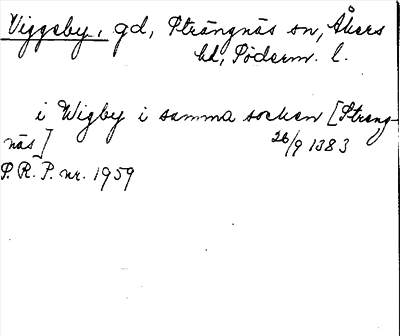 Viggeby, gd, Strängnäs sn, Åkers
hd, Söderm. l.
i Wigby i samma socken [Streng-
näs] 26/9 1383
P. R. P. nr. 1959